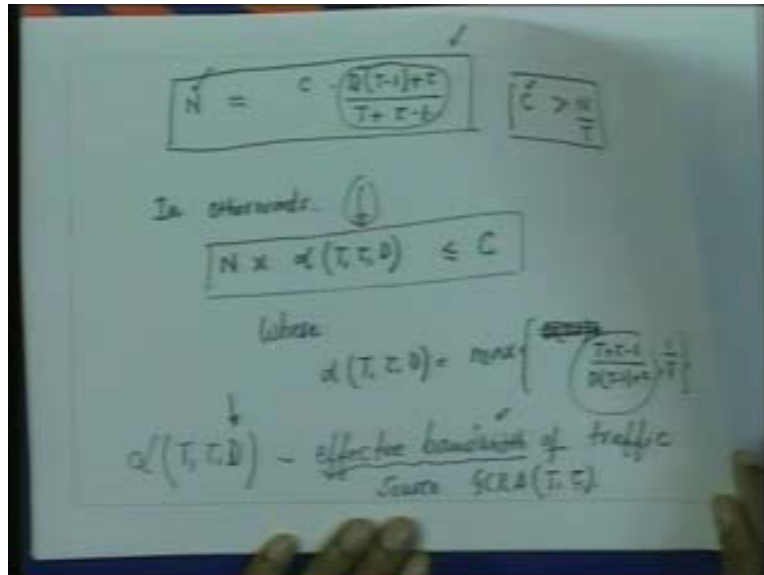 N = C · D(T-1)+τ / T+τ-1
C > N/T
In otherwords.
N x α(T, τ, D) ≤ C
Where
α(T, τ, D) = max { T+τ-1 / D(T-1)+τ , 1/T }
α(T, τ, D) – effective bandwidth of traffic
Source GCRA(T, τ).